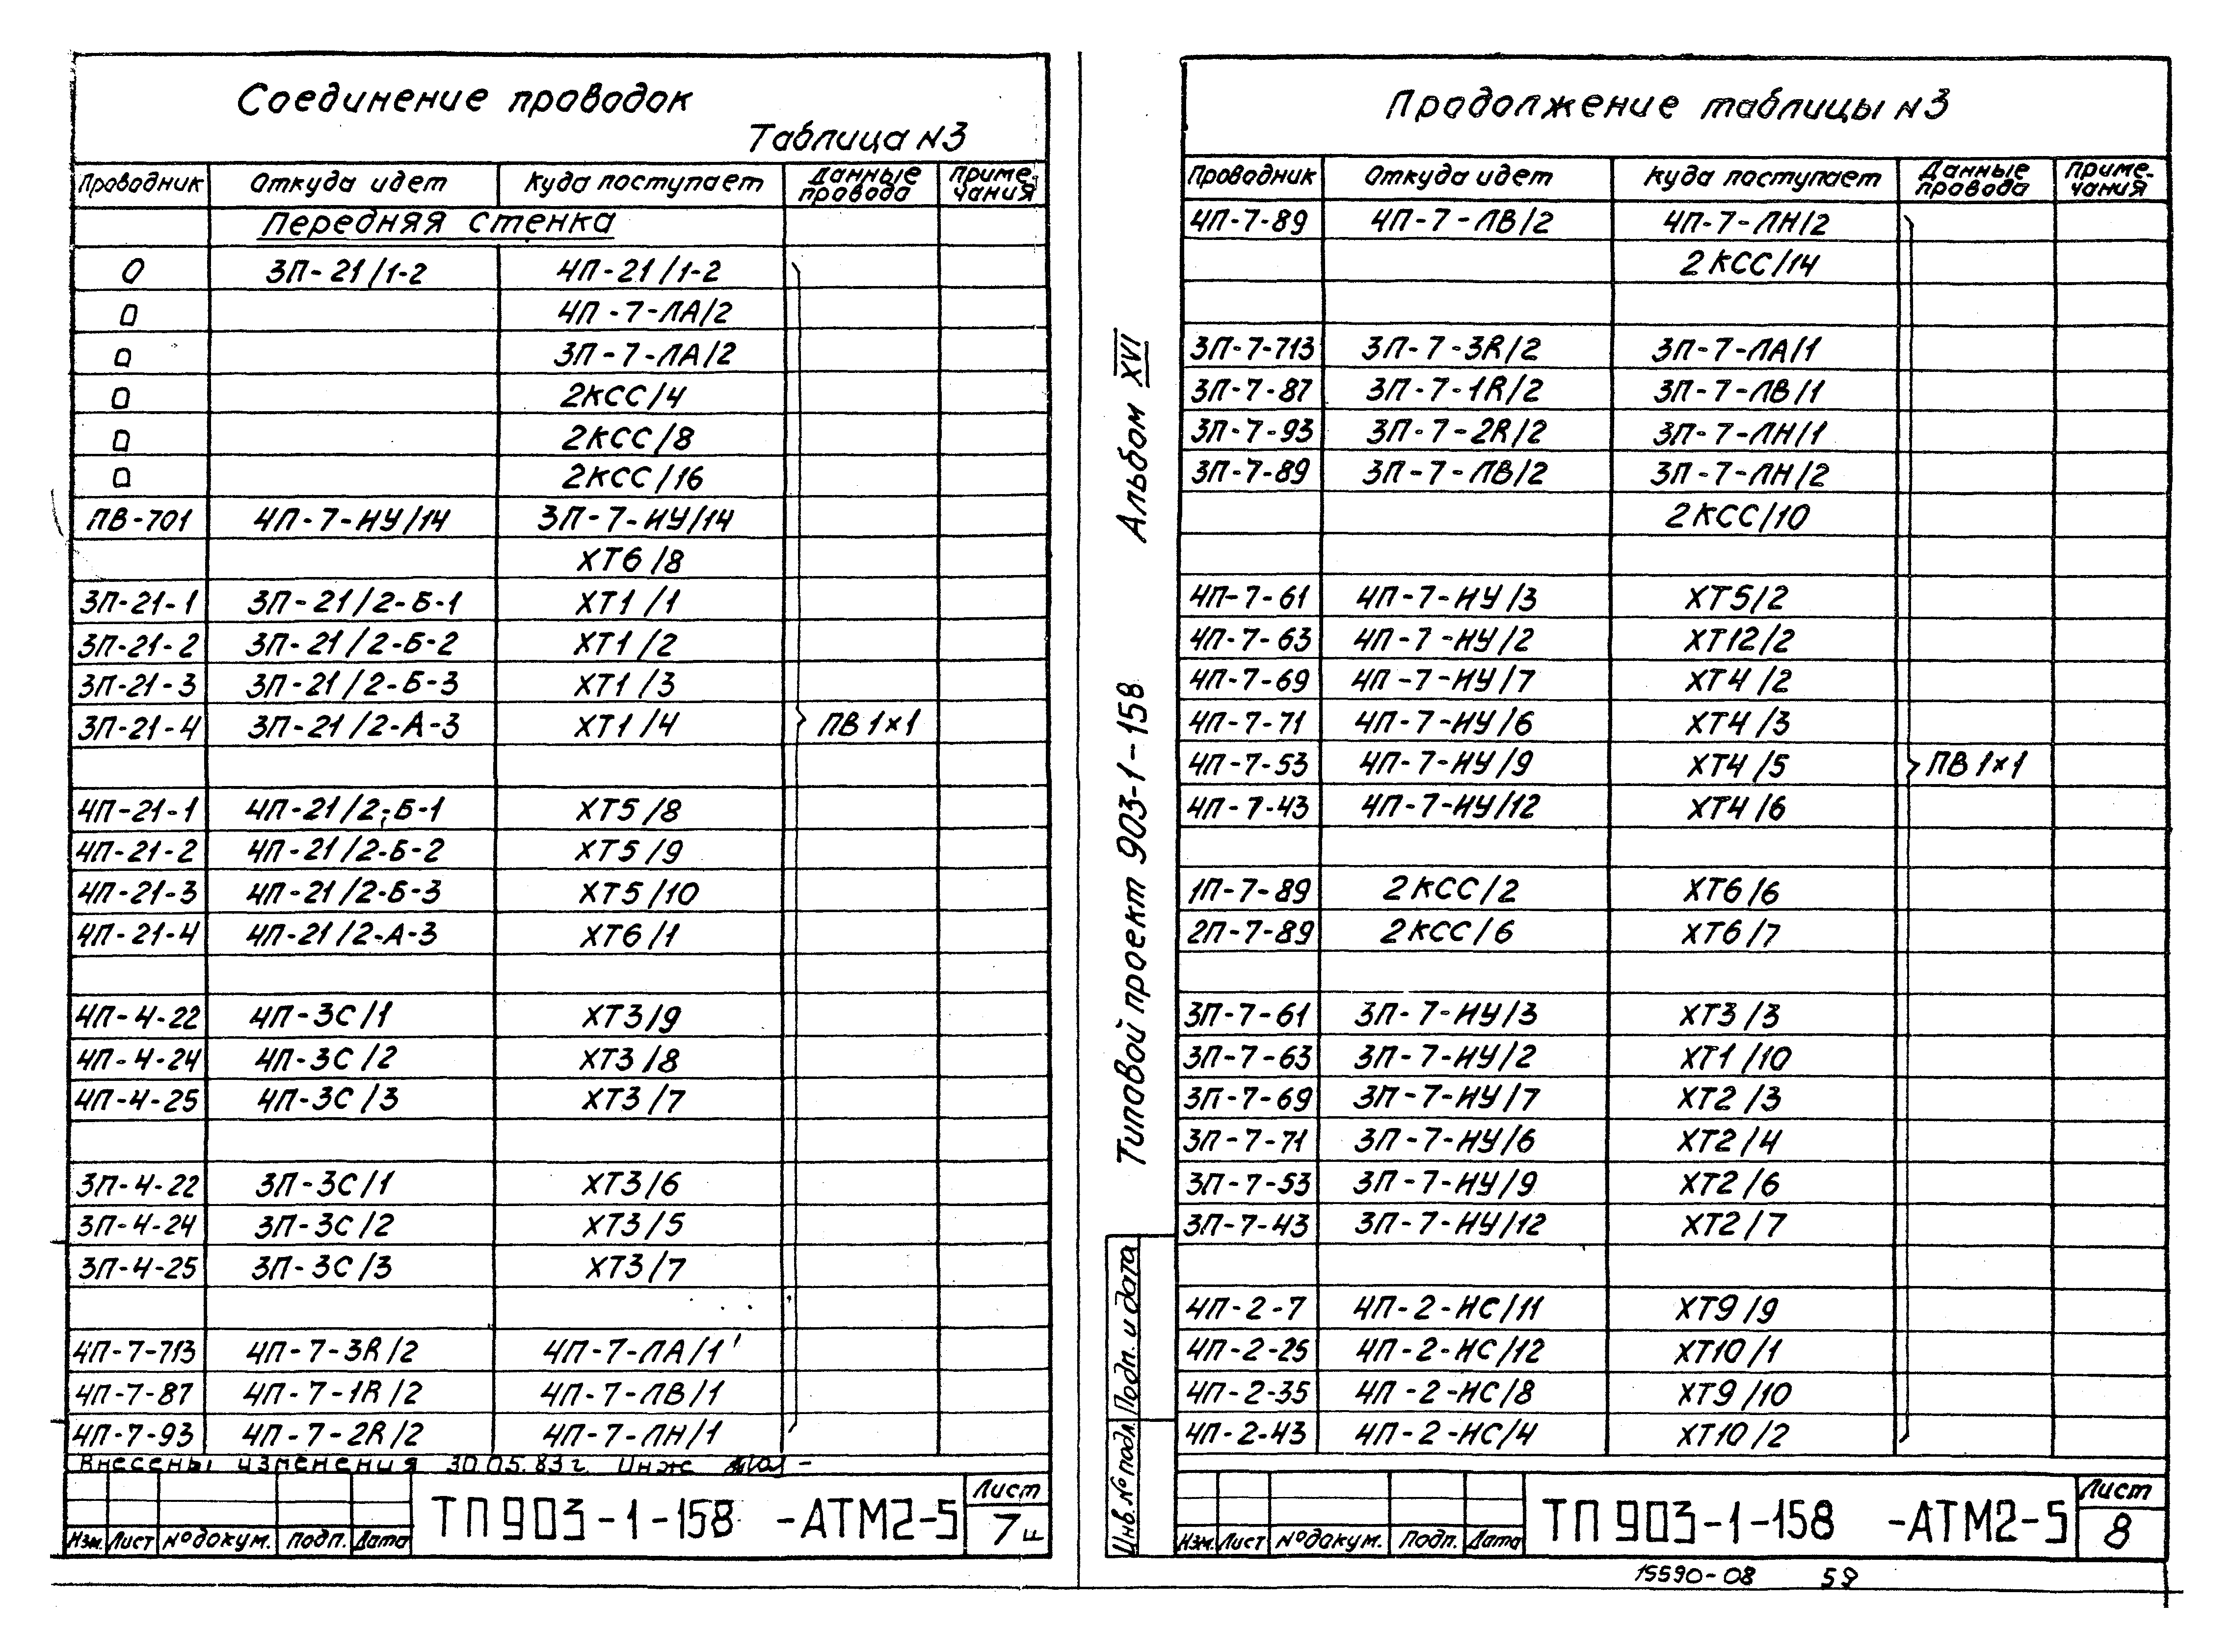 Соединение проводок
Таблица №3
Проводник Откуда идет Куда поступает Данные провода Приме-чания
Передняя стенка
0 3П-21/1-2 4П-21/1-2
0 4П-7-ЛА/2
0 3П-7-ЛА/2
0 2КСС/4
0 2КСС/8
0 2КСС/16
ПВ-701 4П-7-ИУ/14 3П-7-ИУ/14
ХТ6/8
3П-21-1 3П-21/2-Б-1 ХТ1/1
3П-21-2 3П-21/2-Б-2 ХТ1/2
3П-21-3 3П-21/2-Б-3 ХТ1/3
3П-21-4 3П-21/2-А-3 ХТ1/4 ПВ 1×1
4П-21-1 4П-21/2-Б-1 ХТ5/8
4П-21-2 4П-21/2-Б-2 ХТ5/9
4П-21-3 4П-21/2-Б-3 ХТ5/10
4П-21-4 4П-21/2-А-3 ХТ6/1
4П-4-22 4П-3С/1 ХТ3/9
4П-4-24 4П-3С/2 ХТ3/8
4П-4-25 4П-3С/3 ХТ3/7
3П-4-22 3П-3С/1 ХТ3/6
3П-4-24 3П-3С/2 ХТ3/5
3П-4-25 3П-3С/3 ХТ3/7
4П-7-713 4П-7-3R/2 4П-7-ЛА/1
4П-7-87 4П-7-1R/2 4П-7-ЛВ/1
4П-7-93 4П-7-2R/2 4П-7-ЛН/1
Внесены изменения 30.05.83г. Инж
Изм. Лист №докум. Подп. Дата
ТП 903-1-158 -АТМ2-5
Лист
7и
Альбом XVI
Типовой проект 903-1-158
Подп. и дата
Инв.№ подл.
Продолжение таблицы №3
Проводник Откуда идет Куда поступает Данные провода Приме-чания
4П-7-89 4П-7-ЛВ/2 4П-7-ЛН/2
2КСС/14
3П-7-713 3П-7-3R/2 3П-7-ЛА/1
3П-7-87 3П-7-1R/2 3П-7-ЛВ/1
3П-7-93 3П-7-2R/2 3П-7-ЛН/1
3П-7-89 3П-7-ЛВ/2 3П-7-ЛН/2
2КСС/10
4П-7-61 4П-7-ИУ/3 ХТ5/2
4П-7-63 4П-7-ИУ/2 ХТ12/2
4П-7-69 4П-7-ИУ/7 ХТ4/2
4П-7-71 4П-7-ИУ/6 ХТ4/3
4П-7-53 4П-7-ИУ/9 ХТ4/5 ПВ 1×1
4П-7-43 4П-7-ИУ/12 ХТ4/6
1П-7-89 2КСС/2 ХТ6/6
2П-7-89 2КСС/6 ХТ6/7
3П-7-61 3П-7-ИУ/3 ХТ3/3
3П-7-63 3П-7-ИУ/2 ХТ1/10
3П-7-69 3П-7-ИУ/7 ХТ2/3
3П-7-71 3П-7-ИУ/6 ХТ2/4
3П-7-53 3П-7-ИУ/9 ХТ2/6
3П-7-43 3П-7-ИУ/12 ХТ2/7
4П-2-7 4П-2-ИС/11 ХТ9/9
4П-2-25 4П-2-ИС/12 ХТ10/1
4П-2-35 4П-2-ИС/8 ХТ9/10
4П-2-43 4П-2-ИС/4 ХТ10/2
Изм. Лист №докум. Подп. Дата
ТП 903-1-158 -АТМ2-5
Лист
8
15590-08 59